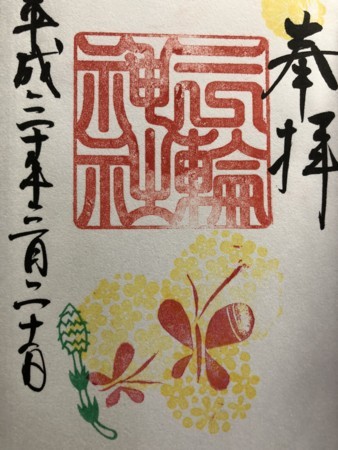 奉拝
三輪神社
平成三十年三月二十日